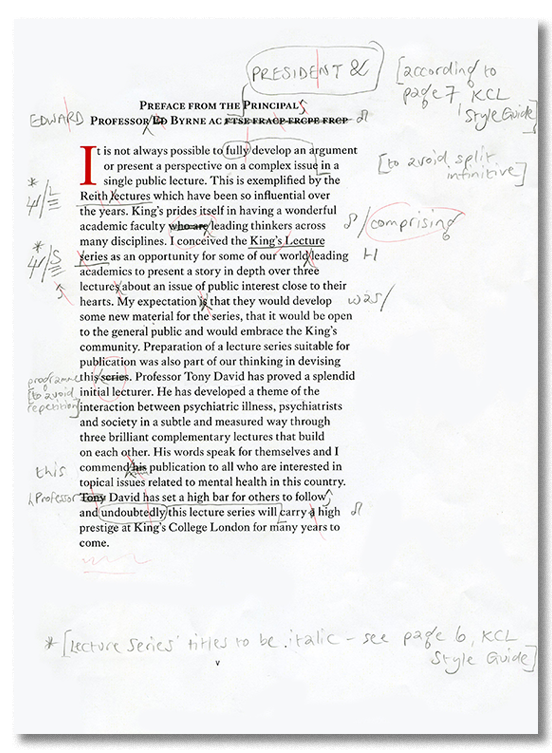 PRESIDENT &
[according to
page 7, KCL
Style Guide]
PREFACE FROM THE PRINCIPAL
S
EDWARD
PROFESSOR ED BYRNE AC FTSE FRACP FRCPE FRCP
It is not always possible to fully develop an argument
or present a perspective on a complex issue in a
[to avoid split
infinitive]
single public lecture. This is exemplified by the
* L
Reith lectures which have been so influential over
the years. King's prides itself in having a wonderful
academic faculty who are leading thinkers across
comprising
many disciplines. I conceived the King's Lecture
* S
series as an opportunity for some of our world leading
H
academics to present a story in depth over three
lectures about an issue of public interest close to their
s
hearts. My expectation is that they would develop
was/
some new material for the series, that it would be open
to the general public and would embrace the King's
community. Preparation of a lecture series suitable for
publication was also part of our thinking in devising
programme
this series. Professor Tony David has proved a splendid
[to avoid
initial lecturer. He has developed a theme of the
repetition]
interaction between psychiatric illness, psychiatrists
and society in a subtle and measured way through
three brilliant complementary lectures that build
on each other. His words speak for themselves and I
this
commend his publication to all who are interested in
topical issues related to mental health in this country.
Professor
Tony David has set a high bar for others to follow
and undoubtedly this lecture series will carry a high
prestige at King's College London for many years to
come.
* [Lecture Series' titles to be italic – see page 6, KCL
Style Guide]
v